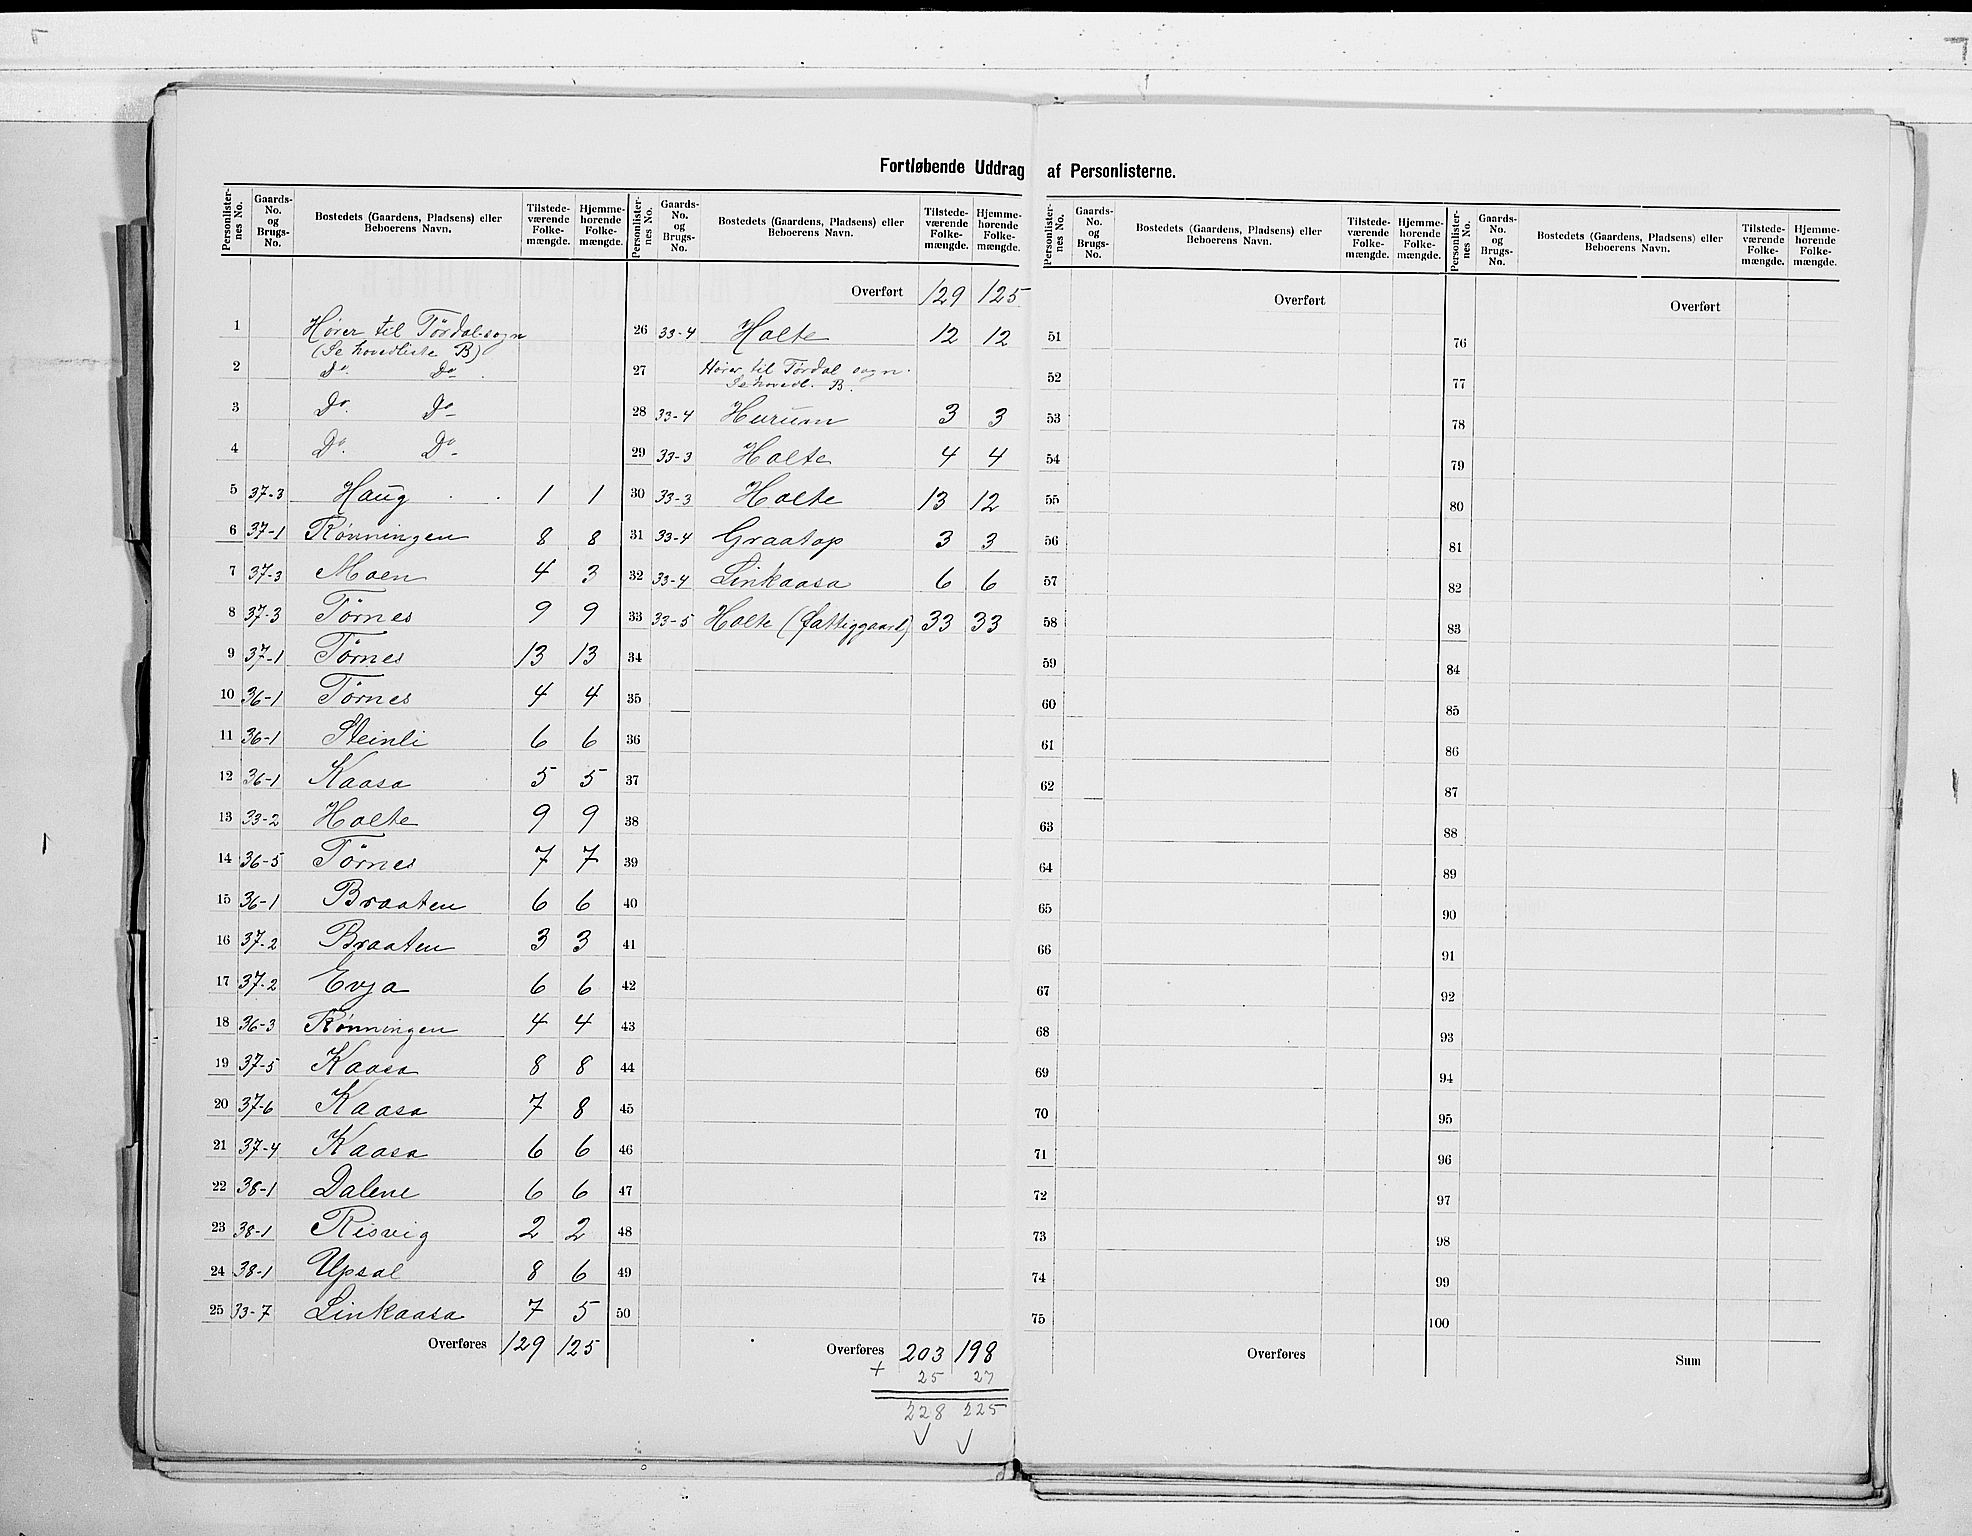 Fortløbende Uddrag af Personlisterne.
Personlister-nes No. Gaards-No. og Brugs-No. Bostedets (Gaardens, Pladsens) eller Beboerens Navn. Tilstede-værende Folke-mængde. Hjemme-hørende Folke-mængde.
1 Hører til Tördal sogn
(Se hovedliste B)
2 Do. Do
3 Do. Do
4 Do. Do
5 37-3 Haug 1 1
6 37-1 Rønningen 8 8
7 37-3 Moen 4 3
8 37-3 Törnes 9 9
9 37-1 Törnes 13 13
10 36-1 Törnes 4 4
11 36-1 Steinli 6 6
12 36-1 Kaasa 5 5
13 33-2 Holte 9 9
14 36-5 Törnes 7 7
15 36-1 Braaten 6 6
16 37-2 Braaten 3 3
17 37-2 Evja 6 6
18 36-3 Rønningen 4 4
19 37-5 Kaasa 8 8
20 37-6 Kaasa 7 8
21 37-4 Kaasa 6 6
22 38-1 Dalene 6 6
23 38-1 Risvig 2 2
24 38-1 Upsal 8 6
25 33-7 Linkaasa 7 5
Overføres 129 125
Personlister-nes No. Gaards-No. og Brugs-No. Bostedets (Gaardens, Pladsens) eller Beboerens Navn. Tilstede-værende Folke-mængde. Hjemme-hørende Folke-mængde.
Overført 129 125
26 33-4 Holte 12 12
27 Hører til Tördal sogn.
Se hovedl. B.
28 33-4 Hurum 3 3
29 33-3 Holte 4 4
30 33-3 Holte 13 12
31 33-4 Graatop 3 3
32 33-4 Linkaasa 6 6
33 33-5 Holte (Fattiggaard) 33 33
34
35
36
37
38
39
40
41
42
43
44
45
46
47
48
49
50
Overføres 203 198
+ 25 27
228 225
Personlister-nes No. Gaards-No. og Brugs-No. Bostedets (Gaardens, Pladsens) eller Beboerens Navn. Tilstede-værende Folke-mængde. Hjemme-hørende Folke-mængde.
Overført
51
52
53
54
55
56
57
58
59
60
61
62
63
64
65
66
67
68
69
70
71
72
73
74
75
Overføres
Personlister-nes No. Gaards-No. og Brugs-No. Bostedets (Gaardens, Pladsens) eller Beboerens Navn. Tilstede-værende Folke-mængde. Hjemme-hørende Folke-mængde.
Overført
76
77
78
79
80
81
82
83
84
85
86
87
88
89
90
91
92
93
94
95
96
97
98
99
100
Sum